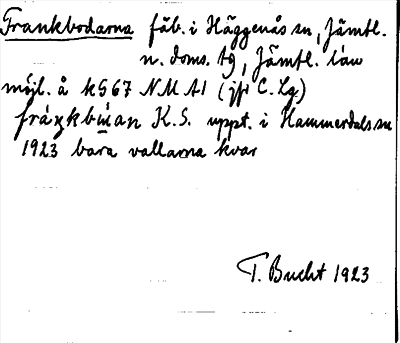 Frankbodarna fäb. i Häggenås sn, Jämtl.
n. doms. tg, Jämtl. län
möjl. å k 567 NMA1 (jfr C. Lg)
K.S. uppt. i Hammerdals sn
1923 bara vallarna kvar
T. Bucht 1923